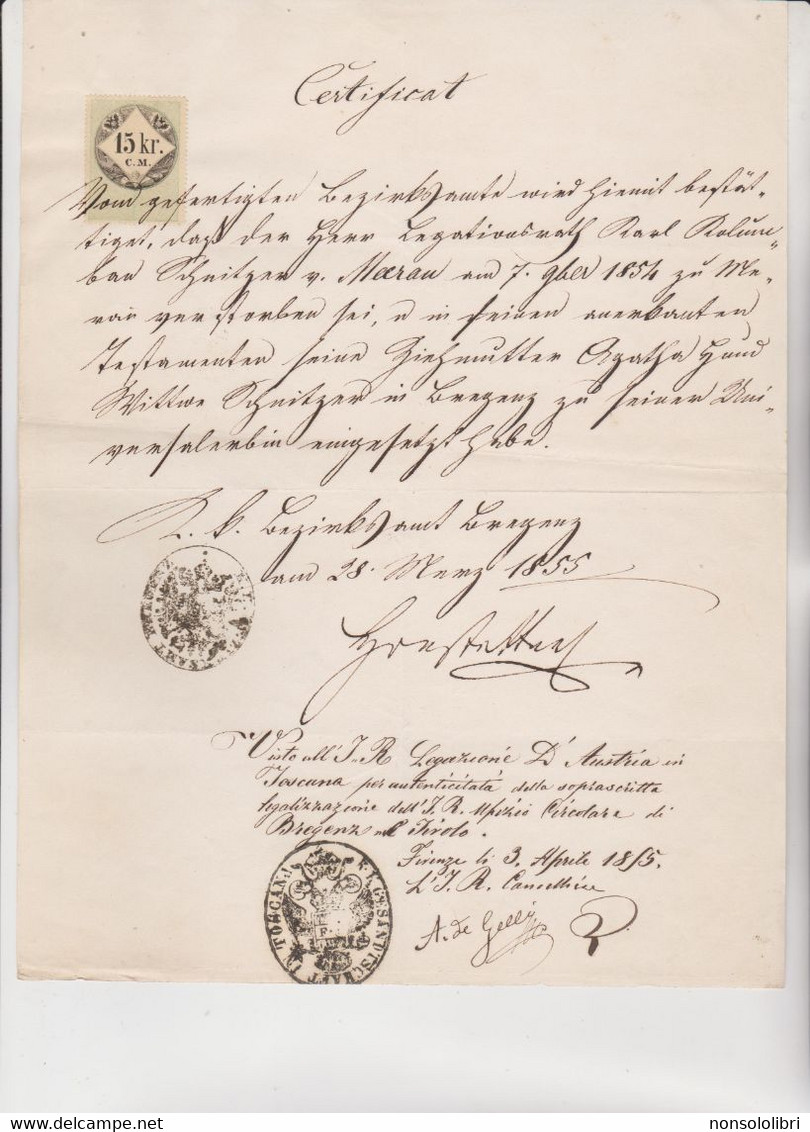 Certificat
15 kr.
C. M.
Vom gefertigten Bezirksamte wird hiemit bestät-
tiget, daß der Herr Legationsrath Karl Kolum-
ban Schnitzer v. Meerau am 7. 9ber 1854 zu Me-
ran verstorben sei, u in seinen anerkanten
Testamenten seine Ziehmutter Agatha Hund
Wittwe Schnitzer in Bregenz zu seiner Uni-
versalerbin eingesetzt habe.
K. k. Bezirksamt Bregenz
am 28. Merz 1855
Visto all' I. R. Legazione D'Austria in
Toscana per autenticitatá della soprascritta
legalizzazione dell' I. R. Uffizio Circolare di
Bregenz nel Tirolo.
Firenze li 3. Aprile 1855.
L' I. R. Cancelliere
A. de Gelli
K. K. GESANDTSCHAFT IN TOSCANA
nonsololibri